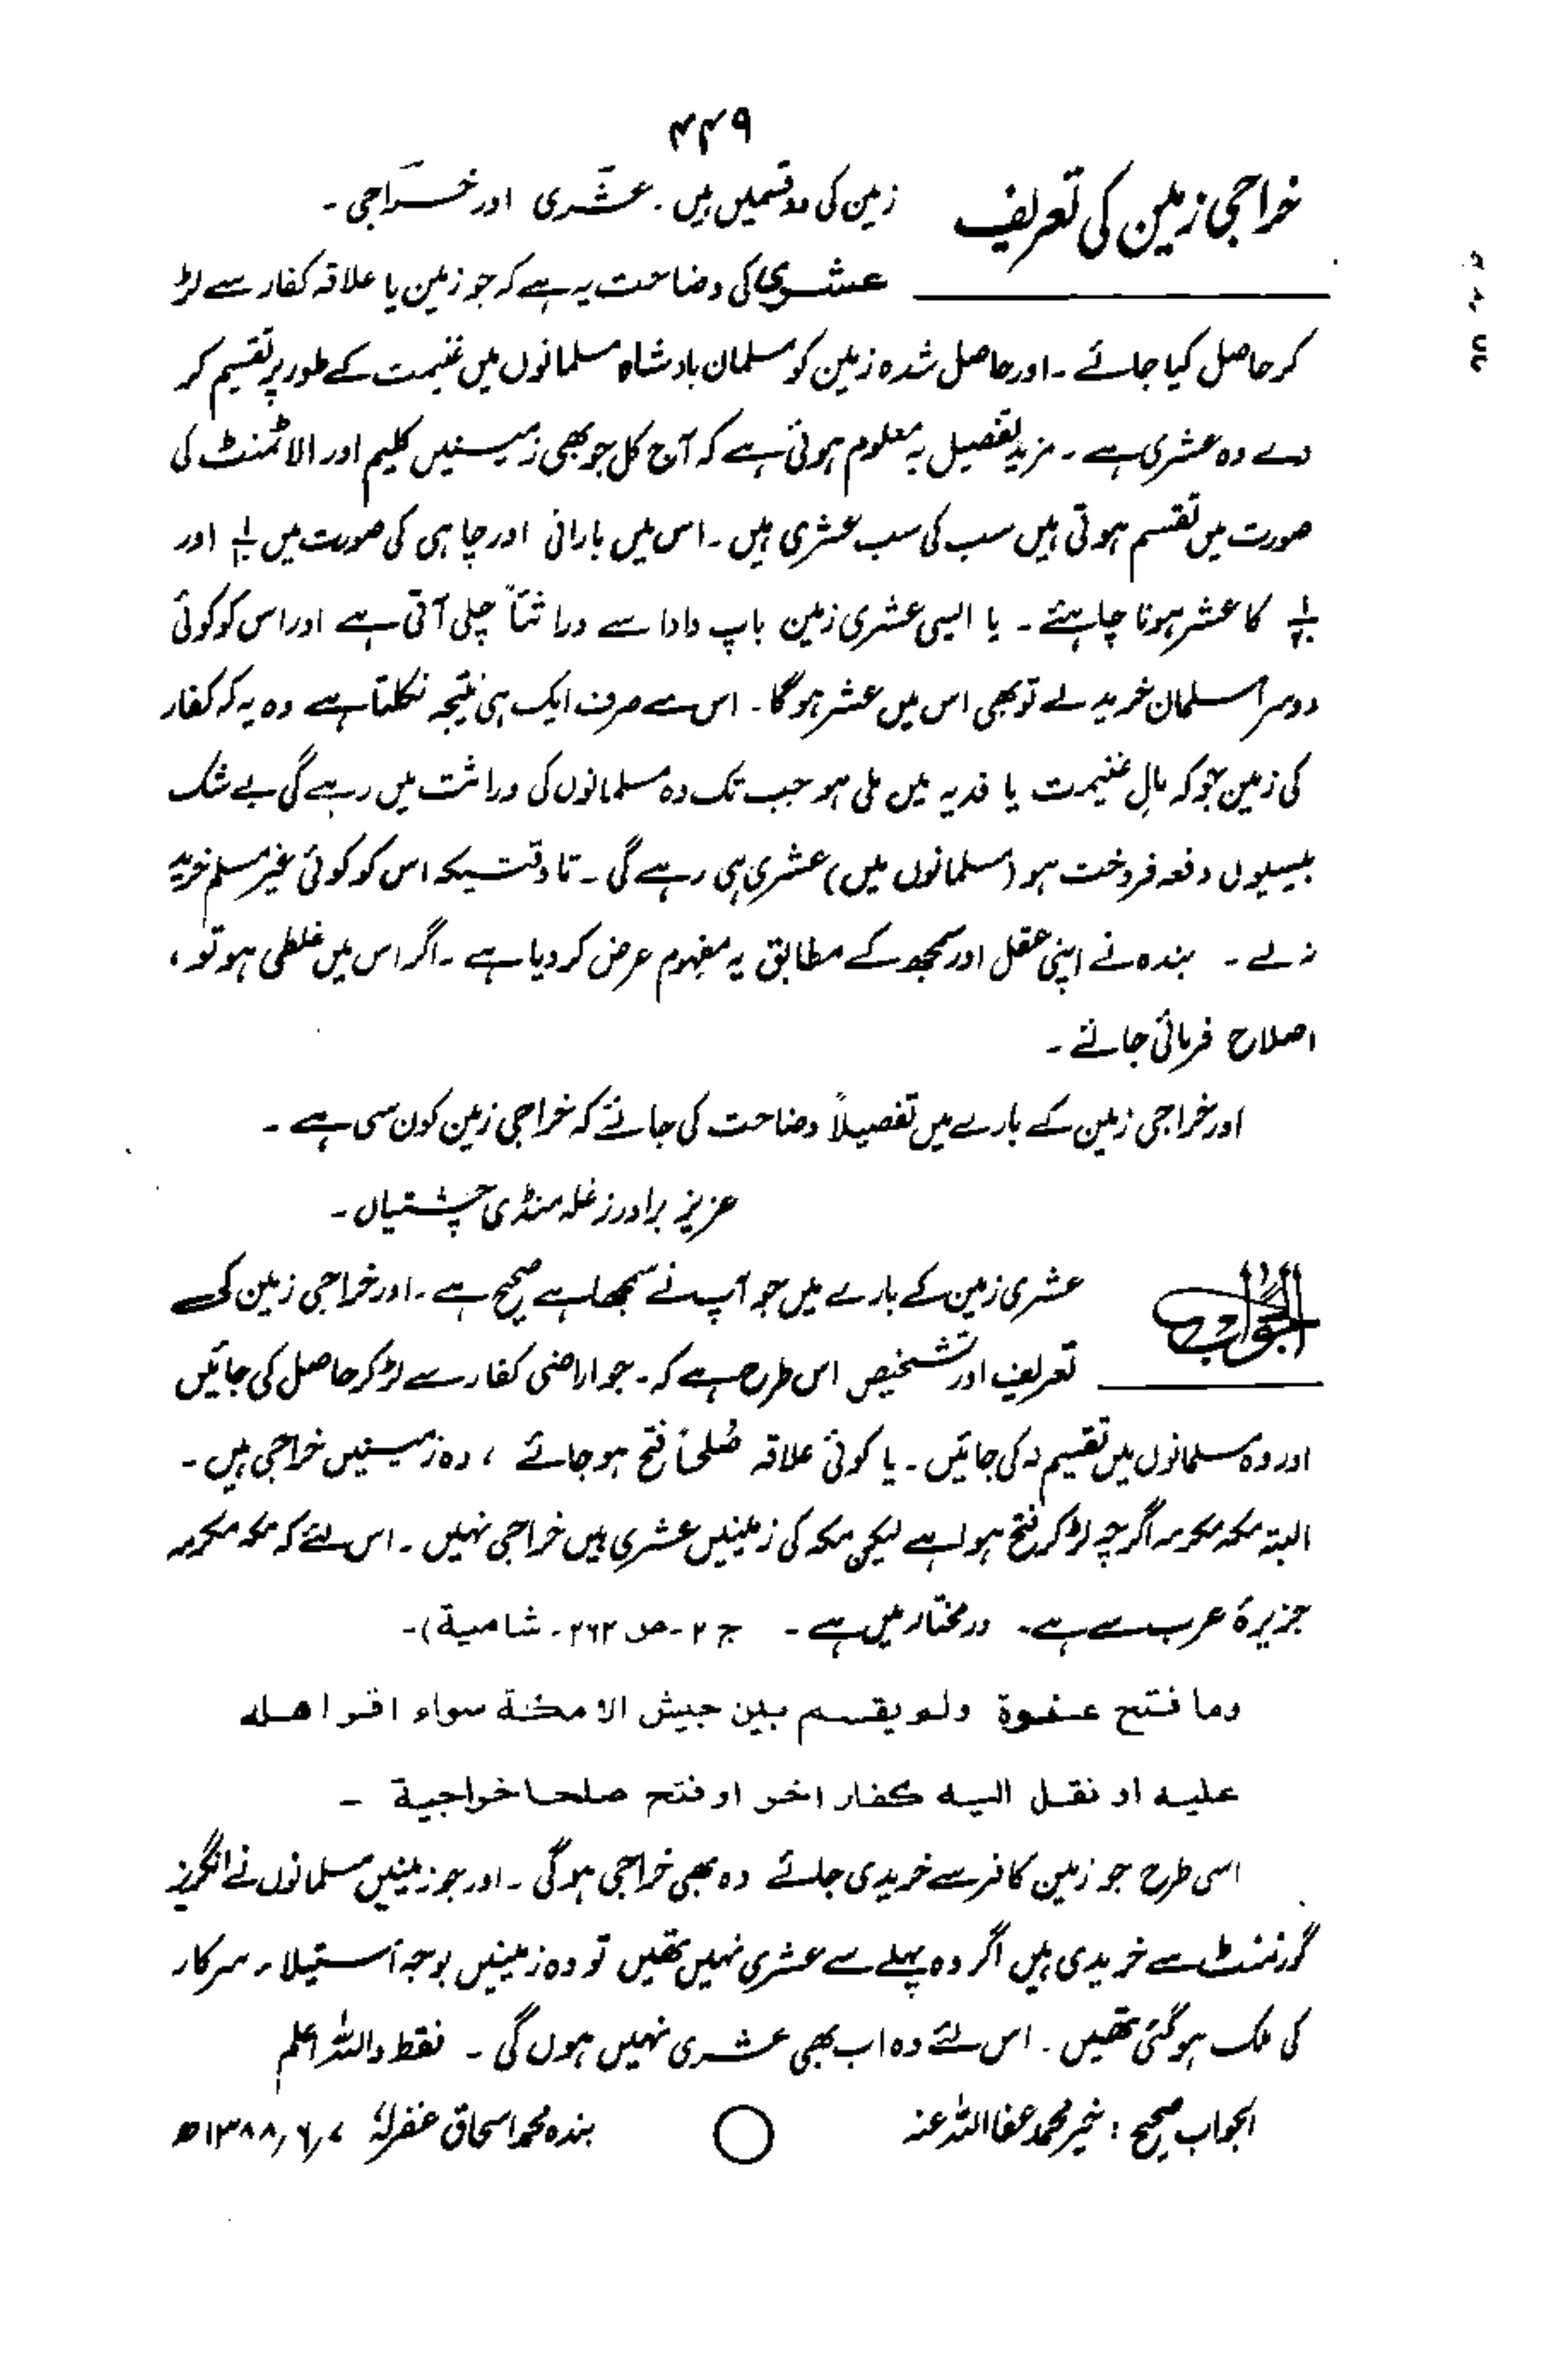 ۴۴۹
خراجی زمین کی تعریف
زمین کی دو قسمیں ہیں۔ عشری اور خراجی۔
عشری کی وضاحت یہ ہے کہ جو زمین یا علاقہ کفار سے لڑ
کر حاصل کیا جائے۔ اور حاصل شدہ زمین کو مسلمان بادشاہ مسلمانوں میں غنیمت کے طور پر تقسیم کر
دے وہ عشری ہے۔ مزید تفصیل یہ معلوم ہوتی ہے کہ آج کل جو بھی زمینیں کلیم اور الاٹمنٹ کی
صورت میں تقسیم ہوتی ہیں سب کی سب عشری ہیں۔ اس میں بارانی اور چاہی کی صورت میں اور
کا عشر ہونا چاہئے۔ یا ایسی عشری زمین باپ دادا سے وراثتاً چلی آتی ہے اور اس کو کوئی
دوسرا مسلمان خرید لے تو بھی اس میں عشر ہوگا۔ اس سے صرف ایک ہی نتیجہ نکلتا ہے وہ یہ کہ کفار
کی زمین جو کہ مالِ غنیمت یا فدیہ میں ملی ہو جب تک وہ مسلمانوں کی وراثت میں رہے گی بے شک
بیسیوں دفعہ فروخت ہو (مسلمانوں میں) عشری ہی رہے گی۔ تا وقتیکہ اس کو کوئی غیر مسلم خرید
نہ لے۔ بندہ نے اپنی عقل اور سمجھ کے مطابق یہ مفہوم عرض کر دیا ہے۔ اگر اس میں غلطی ہو تو،
اصلاح فرمائی جائے۔
اور خراجی زمین کے بارے میں تفصیلاً وضاحت کی جائے کہ خراجی زمین کون سی ہے۔
عزیز برادرز غلہ منڈی چشتیاں۔
الجواب
عشری زمین کے بارے میں جو آپ نے سمجھا ہے صحیح ہے۔ اور خراجی زمین کی
تعریف اور تشخیص اس طرح ہے کہ۔ جو اراضی کفار سے لڑ کر حاصل کی جائیں
اور وہ مسلمانوں میں تقسیم نہ کی جائیں۔ یا کوئی علاقہ صُلحاً فتح ہو جائے، وہ زمینیں خراجی ہیں۔
البتہ مکہ مکرمہ اگرچہ لڑ کر فتح ہوا ہے لیکن مکہ کی زمینیں عشری ہیں خراجی نہیں۔ اس لئے کہ مکہ مکرمہ
جزیرۂ عرب سے ہے۔ درمختار میں ہے۔ ج ۲۔ص ۲۶۲۔ شامیة)۔
وما فتح عنوة ولم يقسم بين جيش الا مكة سواء اقر اهله
عليه او نقل اليه كفار اخر او فتح صلحا خراجية ۔
اسی طرح جو زمین کافر سے خریدی جائے وہ بھی خراجی ہوگی۔ اور جو زمینیں مسلمانوں نے انگریز
گورنمنٹ سے خریدی ہیں اگر وہ پہلے سے عشری نہیں تھیں تو وہ زمینیں بوجہ استیلاء سرکار
کی ملک ہو گئی تھیں۔ اس لئے وہ اب بھی عشری نہیں ہوں گی۔ فقط واللہ اعلم
الجواب صحیح : خیر محمد عفا اللہ عنہ
بندہ محمد اسحاق غفرلہٗ ۷/۶/۱۳۸۸ھ